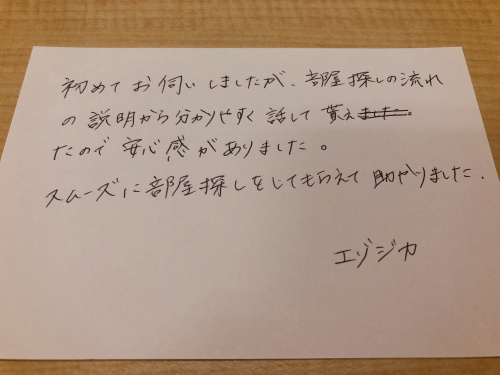 初めてお伺いしましたが、部屋探しの流れ
の説明から分かりやすく話して貰え
たので安心感がありました。
スムーズに部屋探しをしてもらえて助かりました.
エゾジカ